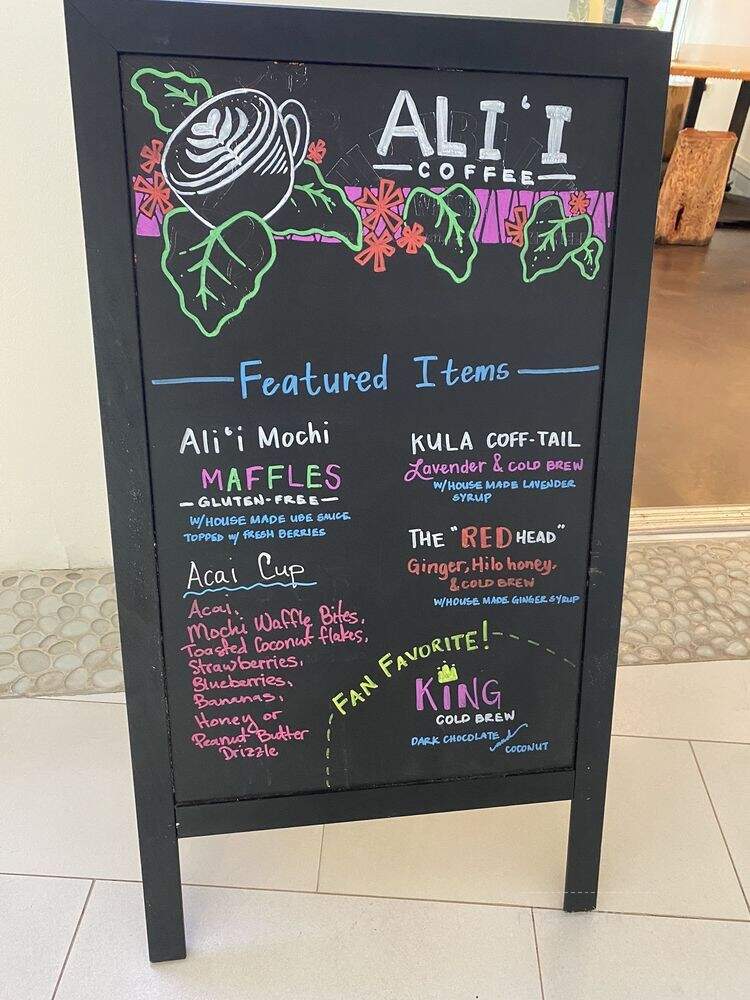 ALI'I
COFFEE
Featured Items
Ali'i Mochi
MAFFLES
GLUTEN-FREE
W/HOUSE MADE UBE SAUCE
TOPPED W/ FRESH BERRIES
Acai Cup
Acai,
Mochi Waffle Bites,
Toasted Coconut flakes,
Strawberries,
Blueberries,
Bananas,
Honey or
Peanut Butter
Drizzle
KULA COFF-TAIL
Lavender & COLD BREW
W/HOUSE MADE LAVENDER
SYRUP
THE "RED HEAD"
Ginger, Hilo honey,
& COLD BREW
W/HOUSE MADE GINGER SYRUP
FAN FAVORITE!
KING
COLD BREW
DARK CHOCOLATE and
COCONUT